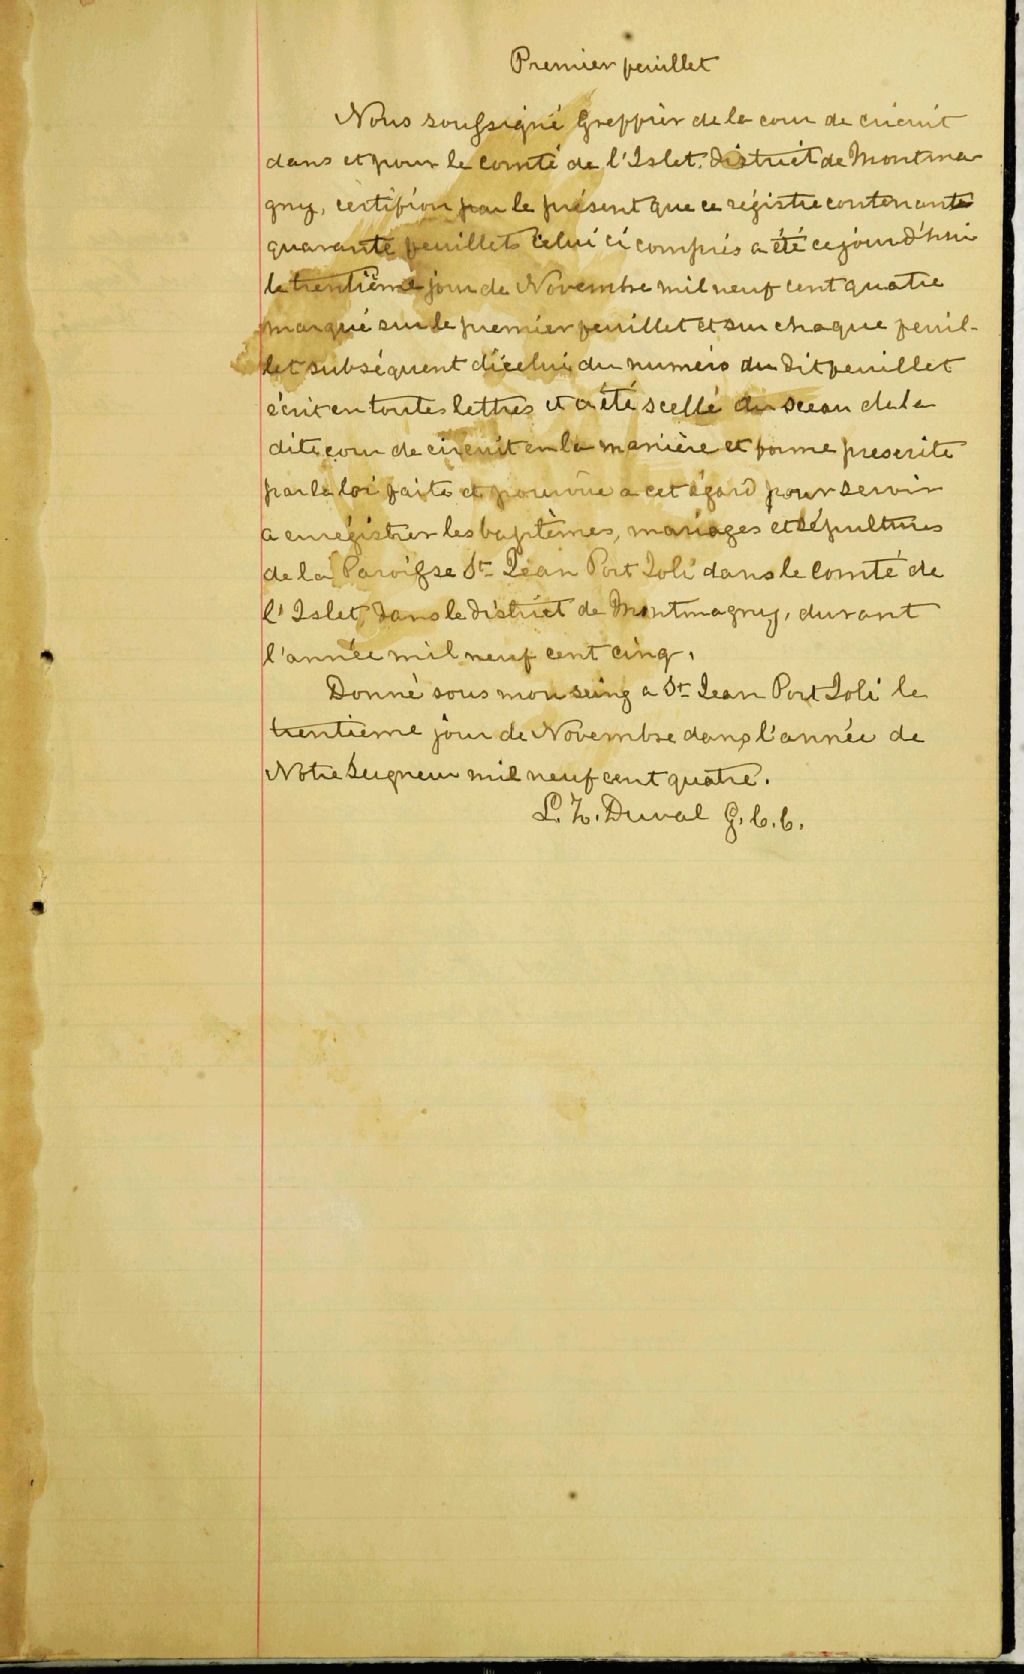 Premier feuillet
Nous soussigné Greffier de la cour de circuit
dans et pour le comté de l'Islet, district de Montma-
gny, certifion par le présent que ce régistre contenante
quarante feuillets celui ci compris a été ce jourd'hui
le trentième jour de Novembre mil neuf cent quatre
marqué sur le premier feuillet et sur chaque feuil-
let subséquent d'icelui du numéro du dit feuillet
écrit en toutes lettres et a été scellé du sceau de la
dite cour de circuit en la manière et forme prescrite
par la loi faite et pourvue a cet égard pour servir
a enrégistrer les baptèmes, mariages et sépultures
de la Paroisse St Jean Port Joli dans le comté de
l'Islet, dans le district de Montmagny, durant
l'année mil neuf cent cinq.
Donné sous mon seing a St Jean Port Joli le
trentieme jour de Novembre dans l'année de
Notre Seigneur mil neuf cent quatre.
L. Z. Duval G. C. C.